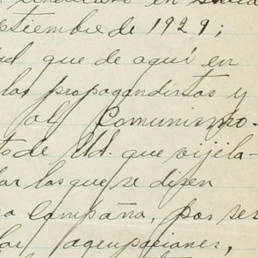 etiembre de 1929;
ad que de aquí en
las propagandistas y
al Comunismo.
to de Ud. que vijila-
dar los que se dizen
a Compaña, por ser
las agrupaciones,